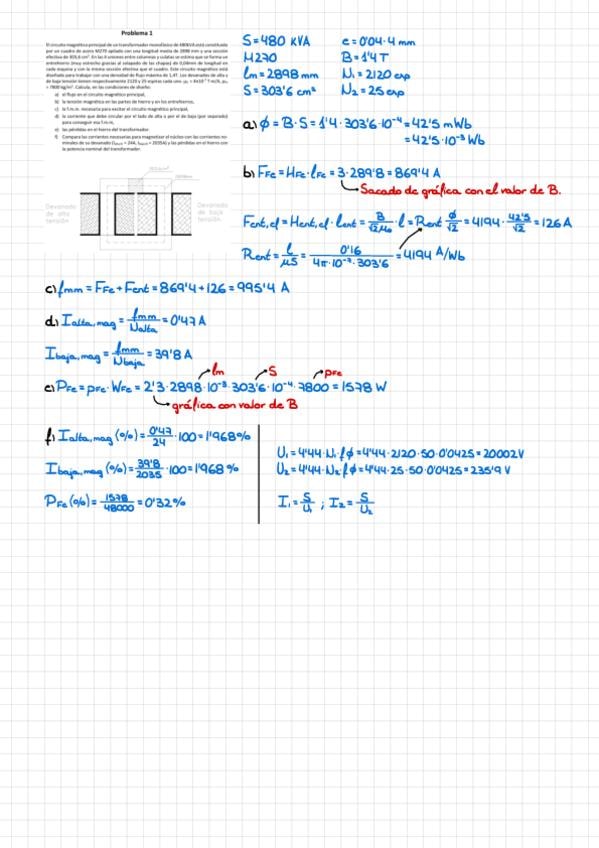 Problema 1
El circuito magnético principal de un transformador monofásico de 480kVA está constituido
por un cuadro de acero M270 apilado con una longitud media de 2898 mm y una sección
efectiva de 303,6 cm². En las 4 uniones entre columnas y culatas se estima que se forma un
entrehierro (muy estrecho gracias al solapado de las chapas) de 0,04mm de longitud en
cada esquina y con la misma sección efectiva que el cuadro. Este circuito magnético está
diseñado para trabajar con una densidad de flujo máxima de 1,4T. Los devanados de alta y
de baja tensión tienen respectivamente 2120 y 25 espiras cada uno.
= 7800 kg/m³. Calcula, en las condiciones de diseño:
a) el flujo en el circuito magnético principal,
b) la tensión magnética en las partes de hierro y en los entrehierros,
c) la f.m.m. necesaria para excitar el circuito magnético principal,
d) la corriente que debe circular por el lado de alta o por el de baja (por separado)
para conseguir esa f.m.m,
e) las pérdidas en el hierro del transformador.
f) Compara las corrientes necesarias para magnetizar el núcleo con las corrientes no-
minales de su devanado y las pérdidas en el hierro con
la potencia nominal del transformador.
Devanado de alta tensión
Devanado de baja tensión
S = 480 KVA e = 0'04·4 mm
M270 B = 1'4 T
lm = 2898 mm N₁ = 2120 esp
S = 303'6 cm² N₂ = 25 esp
a) ϕ = B·S = 1'4·303'6·10⁻⁴ = 42'5 mWb
= 42'5·10⁻³ Wb
b) FFe = HFe·lFe = 3·289'8 = 869'4 A
Sacado de gráfica con el valor de B.
Fent,ef = Hent,ef·lent = B/√2μ₀ · l = Rent ϕ/√2 = 4194·42'5/√2 = 126 A
Rent = l/μS = 0'16/4π·10⁻⁷·303'6 = 4194 A/Wb
c) fmm = FFe + Fent = 869'4 + 126 = 995'4 A
d) Ialta,mag = fmm/Nalta = 0'47 A
Ibaja,mag = fmm/Nbaja = 39'8 A
lm S ρFe
e) PFe = pFe·WFe = 2'3·2898·10⁻³·303'6·10⁻⁴·7800 = 1578 W
gráfica con valor de B
f) Ialta,mag (%) = 0'47/24 ·100 = 1'968%
Ibaja,mag (%) = 39'8/2035 ·100 = 1'968%
PFe (%) = 1578/48000 = 0'32%
U₁ = 4'44·N₁·f·ϕ = 4'44·2120·50·0'0425 = 20002 V
U₂ = 4'44·N₂·f·ϕ = 4'44·25·50·0'0425 = 235'9 V
I₁ = S/U₁ ; I₂ = S/U₂